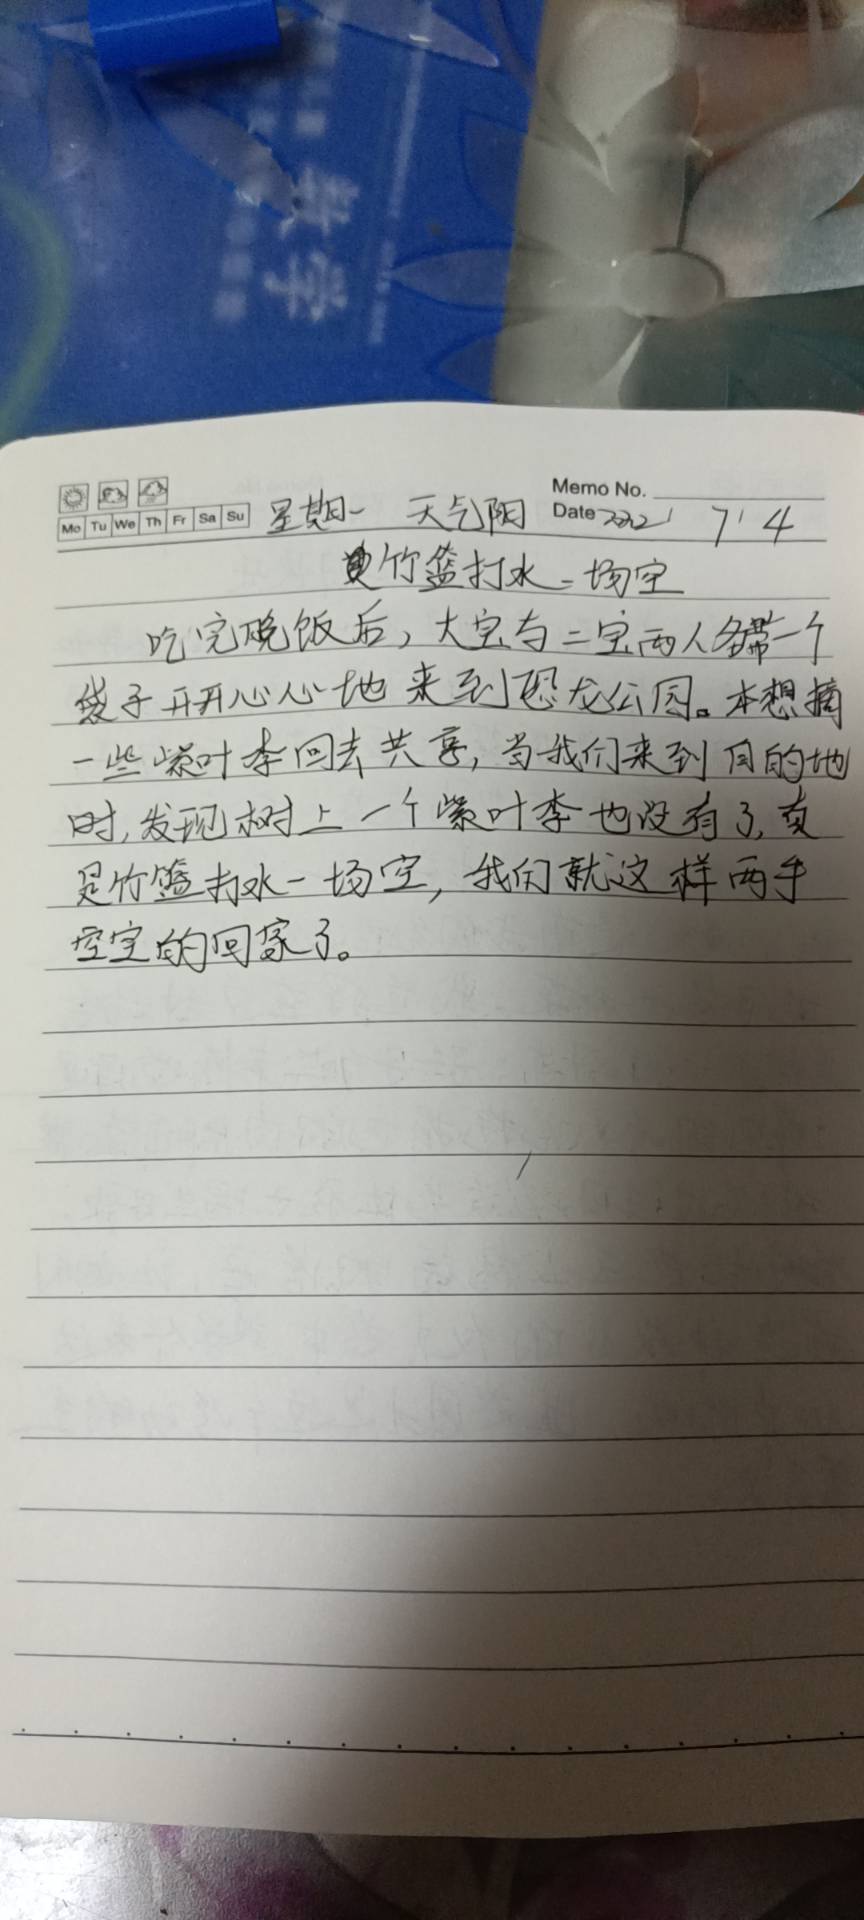 数学
Memo No.
Mo Tu We Th Fr Sa Su 星期一 天气阳 Date 2022 7 4
竹篮打水一场空
吃完晚饭后，大宝与二宝两人各带一个
袋子开开心心地来到恐龙公园。本想摘
一些紫叶李回去共享，当我们来到目的地
时，发现树上一个紫叶李也没有了，真
是竹篮打水一场空，我们就这样两手
空空的回家了。